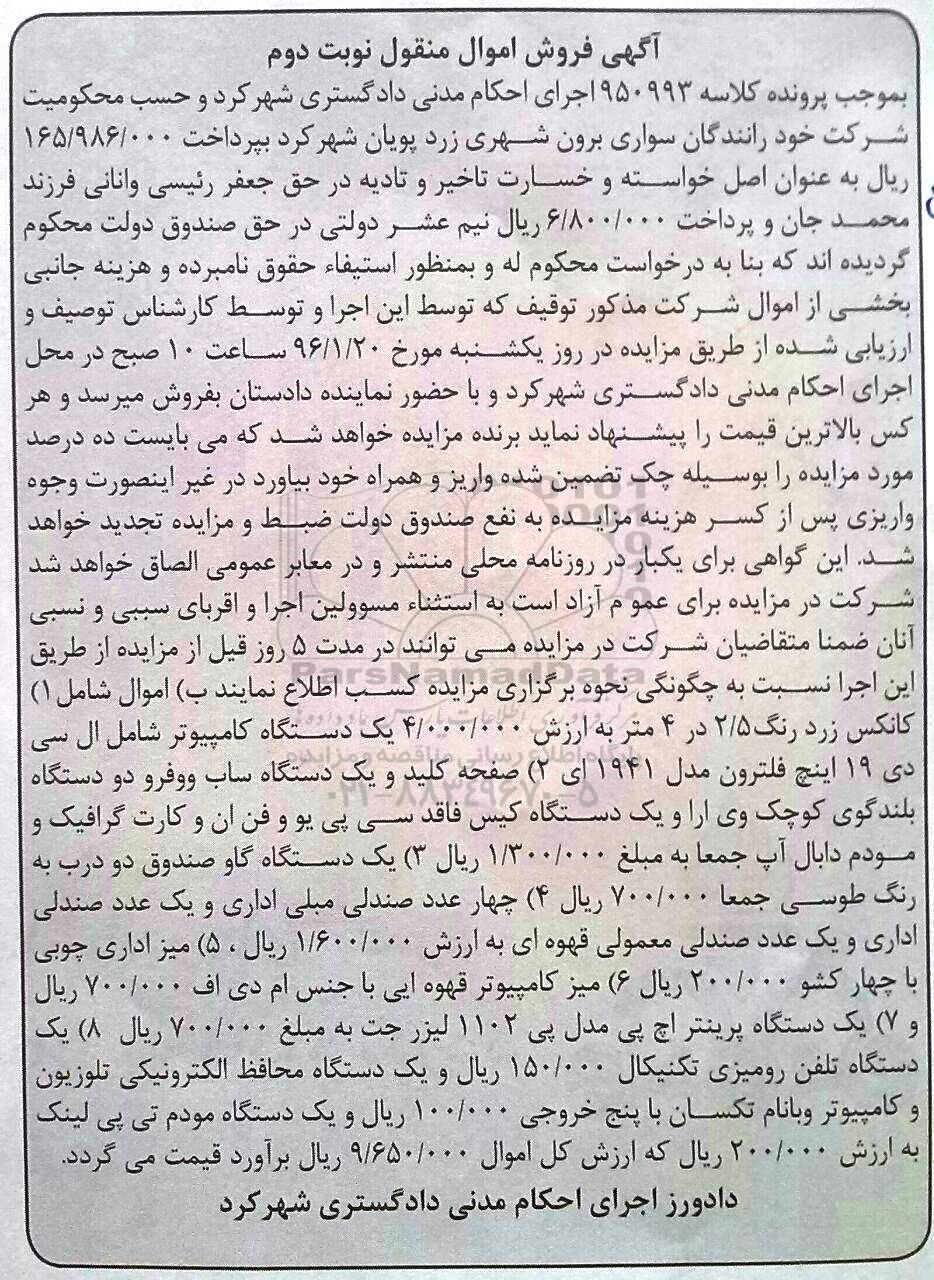 آگهی فروش اموال منقول نوبت دوم
بموجب پرونده کلاسه ۹۵۰۹۹۳ اجرای احکام مدنی دادگستری شهرکرد و حسب محکومیت
شرکت خود رانندگان سواری برون شهری زرد پویان شهرکرد بپرداخت ۱۶۵/۹۸۶/۰۰۰
ریال به عنوان اصل خواسته و خسارت تاخیر و تادیه در حق جعفر رئیسی وانانی فرزند
محمد جان و پرداخت ۶/۸۰۰/۰۰۰ ریال نیم عشر دولتی در حق صندوق دولت محکوم
گردیده اند که بنا به درخواست محکوم له و بمنظور استیفاء حقوق نامبرده و هزینه جانبی
بخشی از اموال شرکت مذکور توقیف که توسط این اجرا و توسط کارشناس توصیف و
ارزیابی شده از طریق مزایده در روز یکشنبه مورخ ۹۶/۱/۲۰ ساعت ۱۰ صبح در محل
اجرای احکام مدنی دادگستری شهرکرد و با حضور نماینده دادستان بفروش میرسد و هر
کس بالاترین قیمت را پیشنهاد نماید برنده مزایده خواهد شد که می بایست ده درصد
مورد مزایده را بوسیله چک تضمین شده واریز و همراه خود بیاورد در غیر اینصورت وجوه
واریزی پس از کسر هزینه مزایده به نفع صندوق دولت ضبط و مزایده تجدید خواهد
شد. این گواهی برای یکبار در روزنامه محلی منتشر و در معابر عمومی الصاق خواهد شد
شرکت در مزایده برای عمو م آزاد است به استثناء مسوولین اجرا و اقربای سببی و نسبی
آنان ضمنا متقاضیان شرکت در مزایده می توانند در مدت ۵ روز قبل از مزایده از طریق
ParsNamadData
این اجرا نسبت به چگونگی نحوه برگزاری مزایده کسب اطلاع نمایند ب) اموال شامل ۱)
کانکس زرد رنگ ۲/۵ در ۴ متر به ارزش ۴/۰۰۰/۰۰۰ یک دستگاه کامپیوتر شامل ال سی
پایگاه اطلاع رسانی مناقصه و مزایده
دی ۱۹ اینچ فلترون مدل ۱۹۴۱ ای ۲) صفحه کلید و یک دستگاه ساب ووفرو دو دستگاه
۰۲۱-۸۸۳۴۹۶۷۰-۵
بلندگوی کوچک وی ارا و یک دستگاه کیس فاقد سی پی یو و فن ان و کارت گرافیک و
مودم دابال آپ جمعا به مبلغ ۱/۳۰۰/۰۰۰ ریال ۳) یک دستگاه گاو صندوق دو درب به
رنگ طوسی جمعا ۷۰۰/۰۰۰ ریال ۴) چهار عدد صندلی مبلی اداری و یک عدد صندلی
اداری و یک عدد صندلی معمولی قهوه ای به ارزش ۱/۶۰۰/۰۰۰ ریال ، ۵) میز اداری چوبی
با چهار کشو ۲۰۰/۰۰۰ ریال ۶) میز کامپیوتر قهوه ایی با جنس ام دی اف ۷۰۰/۰۰۰ ریال
و ۷) یک دستگاه پرینتر اچ پی مدل پی ۱۱۰۲ لیزر جت به مبلغ ۷۰۰/۰۰۰ ریال ۸) یک
دستگاه تلفن رومیزی تکنیکال ۱۵۰/۰۰۰ ریال و یک دستگاه محافظ الکترونیکی تلوزیون
و کامپیوتر وبانام تکسان با پنج خروجی ۱۰۰/۰۰۰ ریال و یک دستگاه مودم تی پی لینک
به ارزش ۲۰۰/۰۰۰ ریال که ارزش کل اموال ۹/۶۵۰/۰۰۰ ریال برآورد قیمت می گردد.
دادورز اجرای احکام مدنی دادگستری شهرکرد